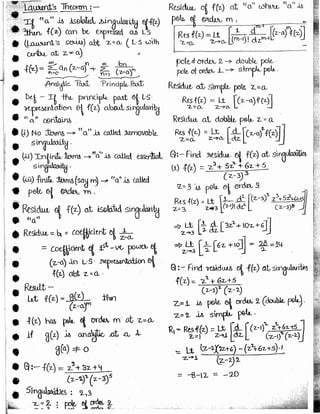 Laurent's Theorem :-
If "a" is isolated singularity of f(z)
then f(z) can be expressed as LS
(Laurent's series) abt z=a (L·S with
centre at z=a)
f(z) = Σ_{n=0}^{∞} an (z-a)^n + Σ_{n=1}^{∞} bn/(z-a)^n
Analytic Part Principle Part
Def - If the principle part of LS
representation of f(z) about singularity
"a" contains
(i) No Terms → "a" is called removable
singularity.
(ii) Infinite terms → "a" is called essential
singularity.
(iii) finite terms (say m) → "a" is called
pole of order m.
Residue of f(z) at isolated singularity
"a"
Residue = b₁ = coefficient of 1/(z-a)
= coefficient of 1st -ve power of
(z-a) in L·S representation of
f(z) abt z=a.
Result :-
Let f(z) = g(z)/(z-a)^m then
f(z) has pole of order m at z=a
If g(z) is analytic at a &
g(a) ≠ 0
Q:- f(z) = (z²+3z+4)/((z-2)²(z-3)⁵)
Singularities : 2,3
z=2 : pole of order 2
Residue of f(z) at "a" where "a" is
pole of order m.
Res f(z) = Lt_{z→a} [1/(m-1)! d^{m-1}/dz^{m-1} (z-a)^m f(z)]
z=a
pole of order 2 → double pole
pole of order 1 → simple pole.
Residue at simple pole z=a
Res f(z) = Lt_{z→a} [(z-a) f(z)]
z=a
Residue at double pole z=a
Res f(z) = Lt_{z→a} [d/dz (z-a)² f(z)]
z=a
Q:- Find residue of f(z) at singularities
(i) f(z) = (z³+5z²+6z+5)/(z-3)³
z=3 is pole of order 3
Res f(z) = Lt_{z→3} [1/(3-1)! d²/dz² (z-3)³
z=3
⇒ Lt_{z→3} [1/2 d/dz [3z²+10z+6]]
⇒ Lt_{z→3} [1/2 [6z+10]] = 28/2 = 14
Q:- Find residues of f(z) at singularities
f(z) = (z²+6z+5)/((z-1)²(z-2))
z=1 is pole of order 2 (double pole).
z=2 is simple pole.
R₁ = Res f(z) = Lt_{z→1} [d/dz [(z-1)² (z²+6z+5)/((z-1)²(z-2))
z=1
= Lt_{z→1} ((z-2)(2z+6) - (z²+6z+5)·1)/(z-2)²
= -8-12 = -20